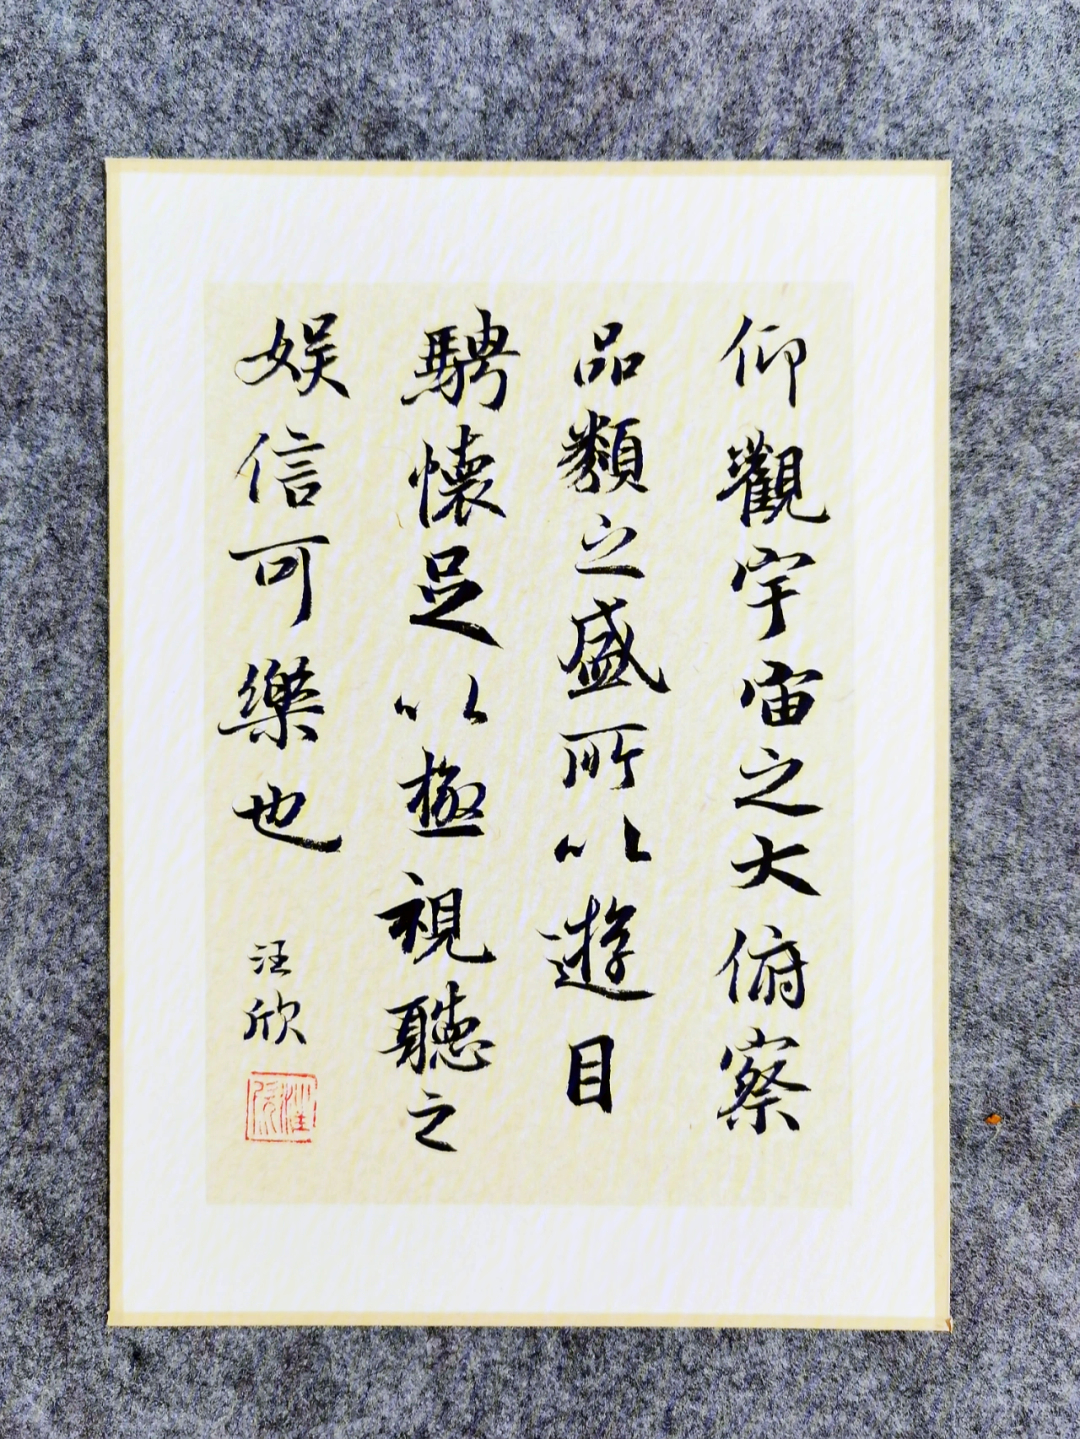 仰觀宇宙之大俯察
品類之盛所以遊目
騁懷足以極視聽之
娱信可樂也
汪欣
汪欣